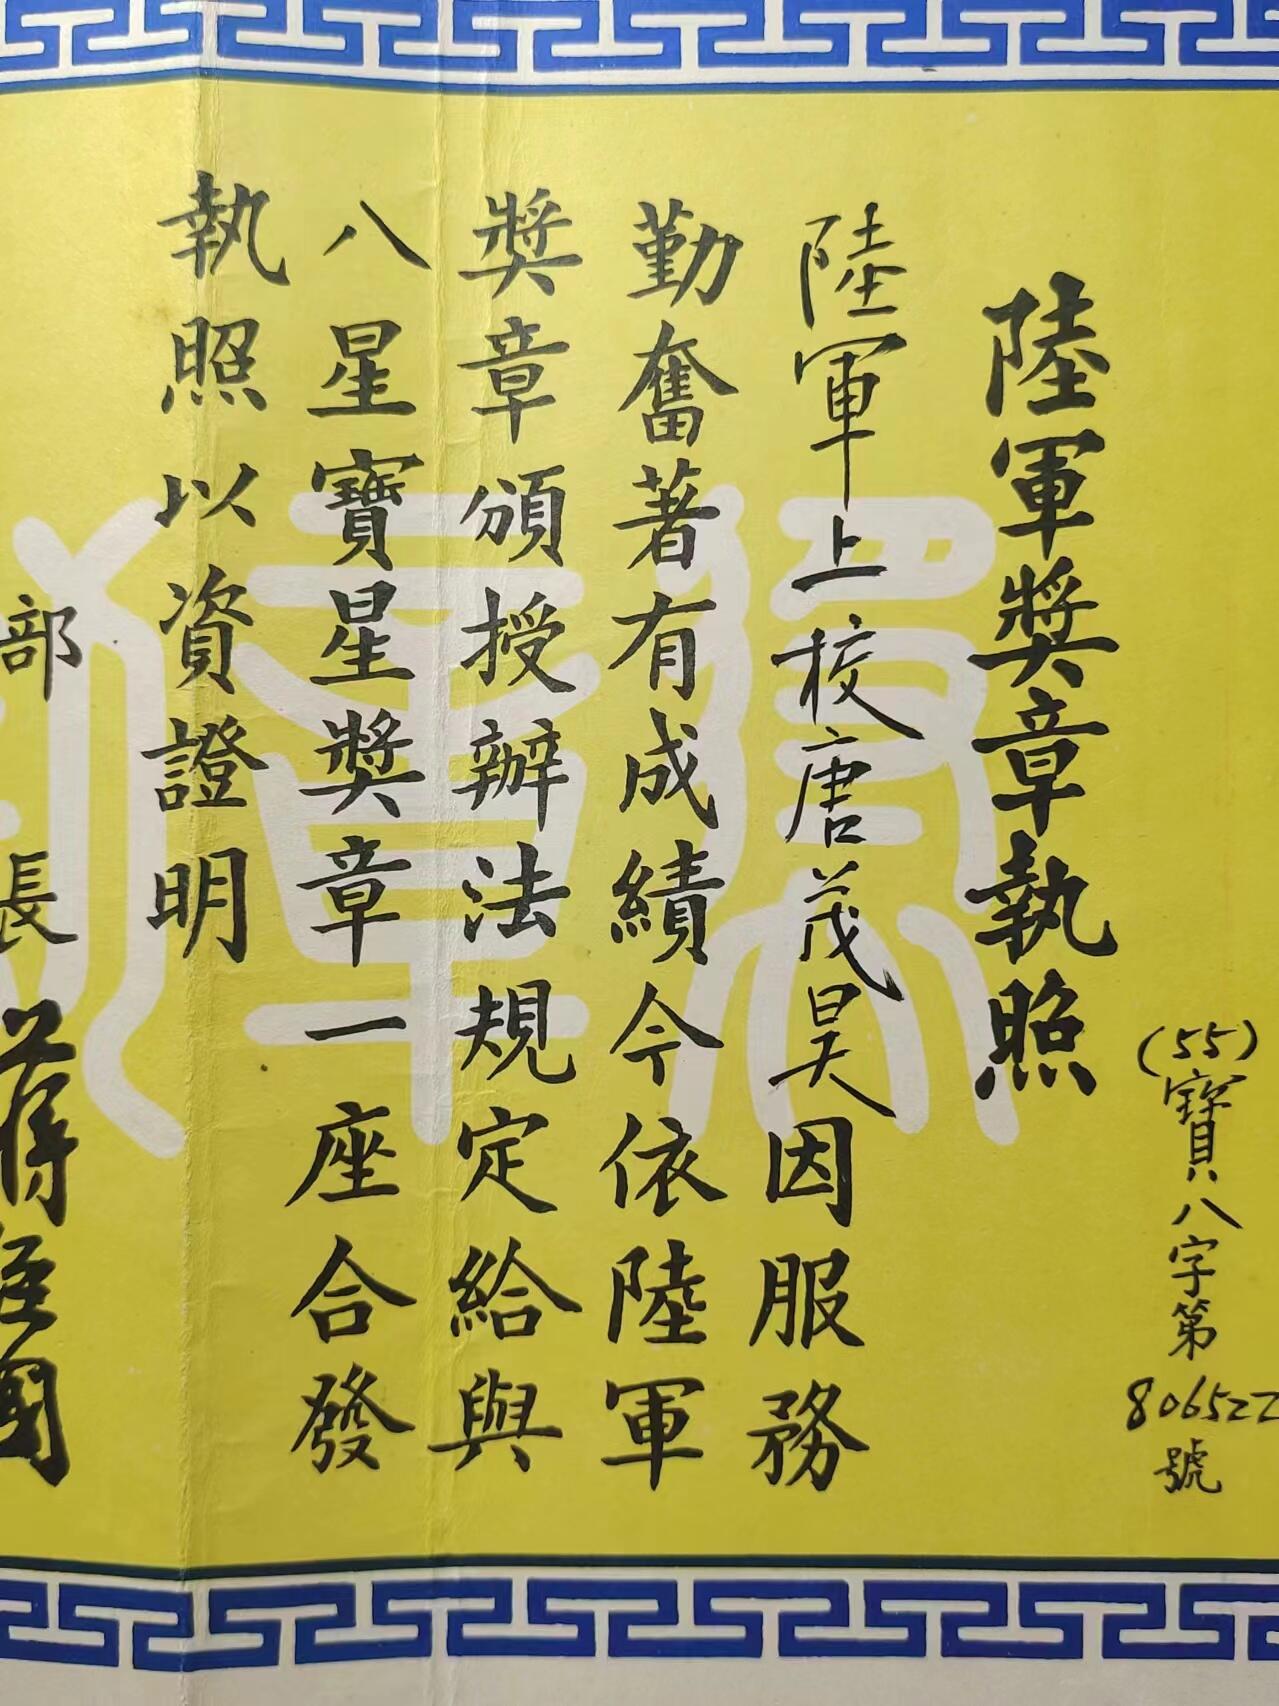 (55)寶八字第806522號
陸軍獎章執照
陸軍上校唐茂昊因服務
勤奮著有成績今依陸軍
獎章頒授辦法規定給與
八星寶星獎章一座合發
執照以資證明
部長蔣經國